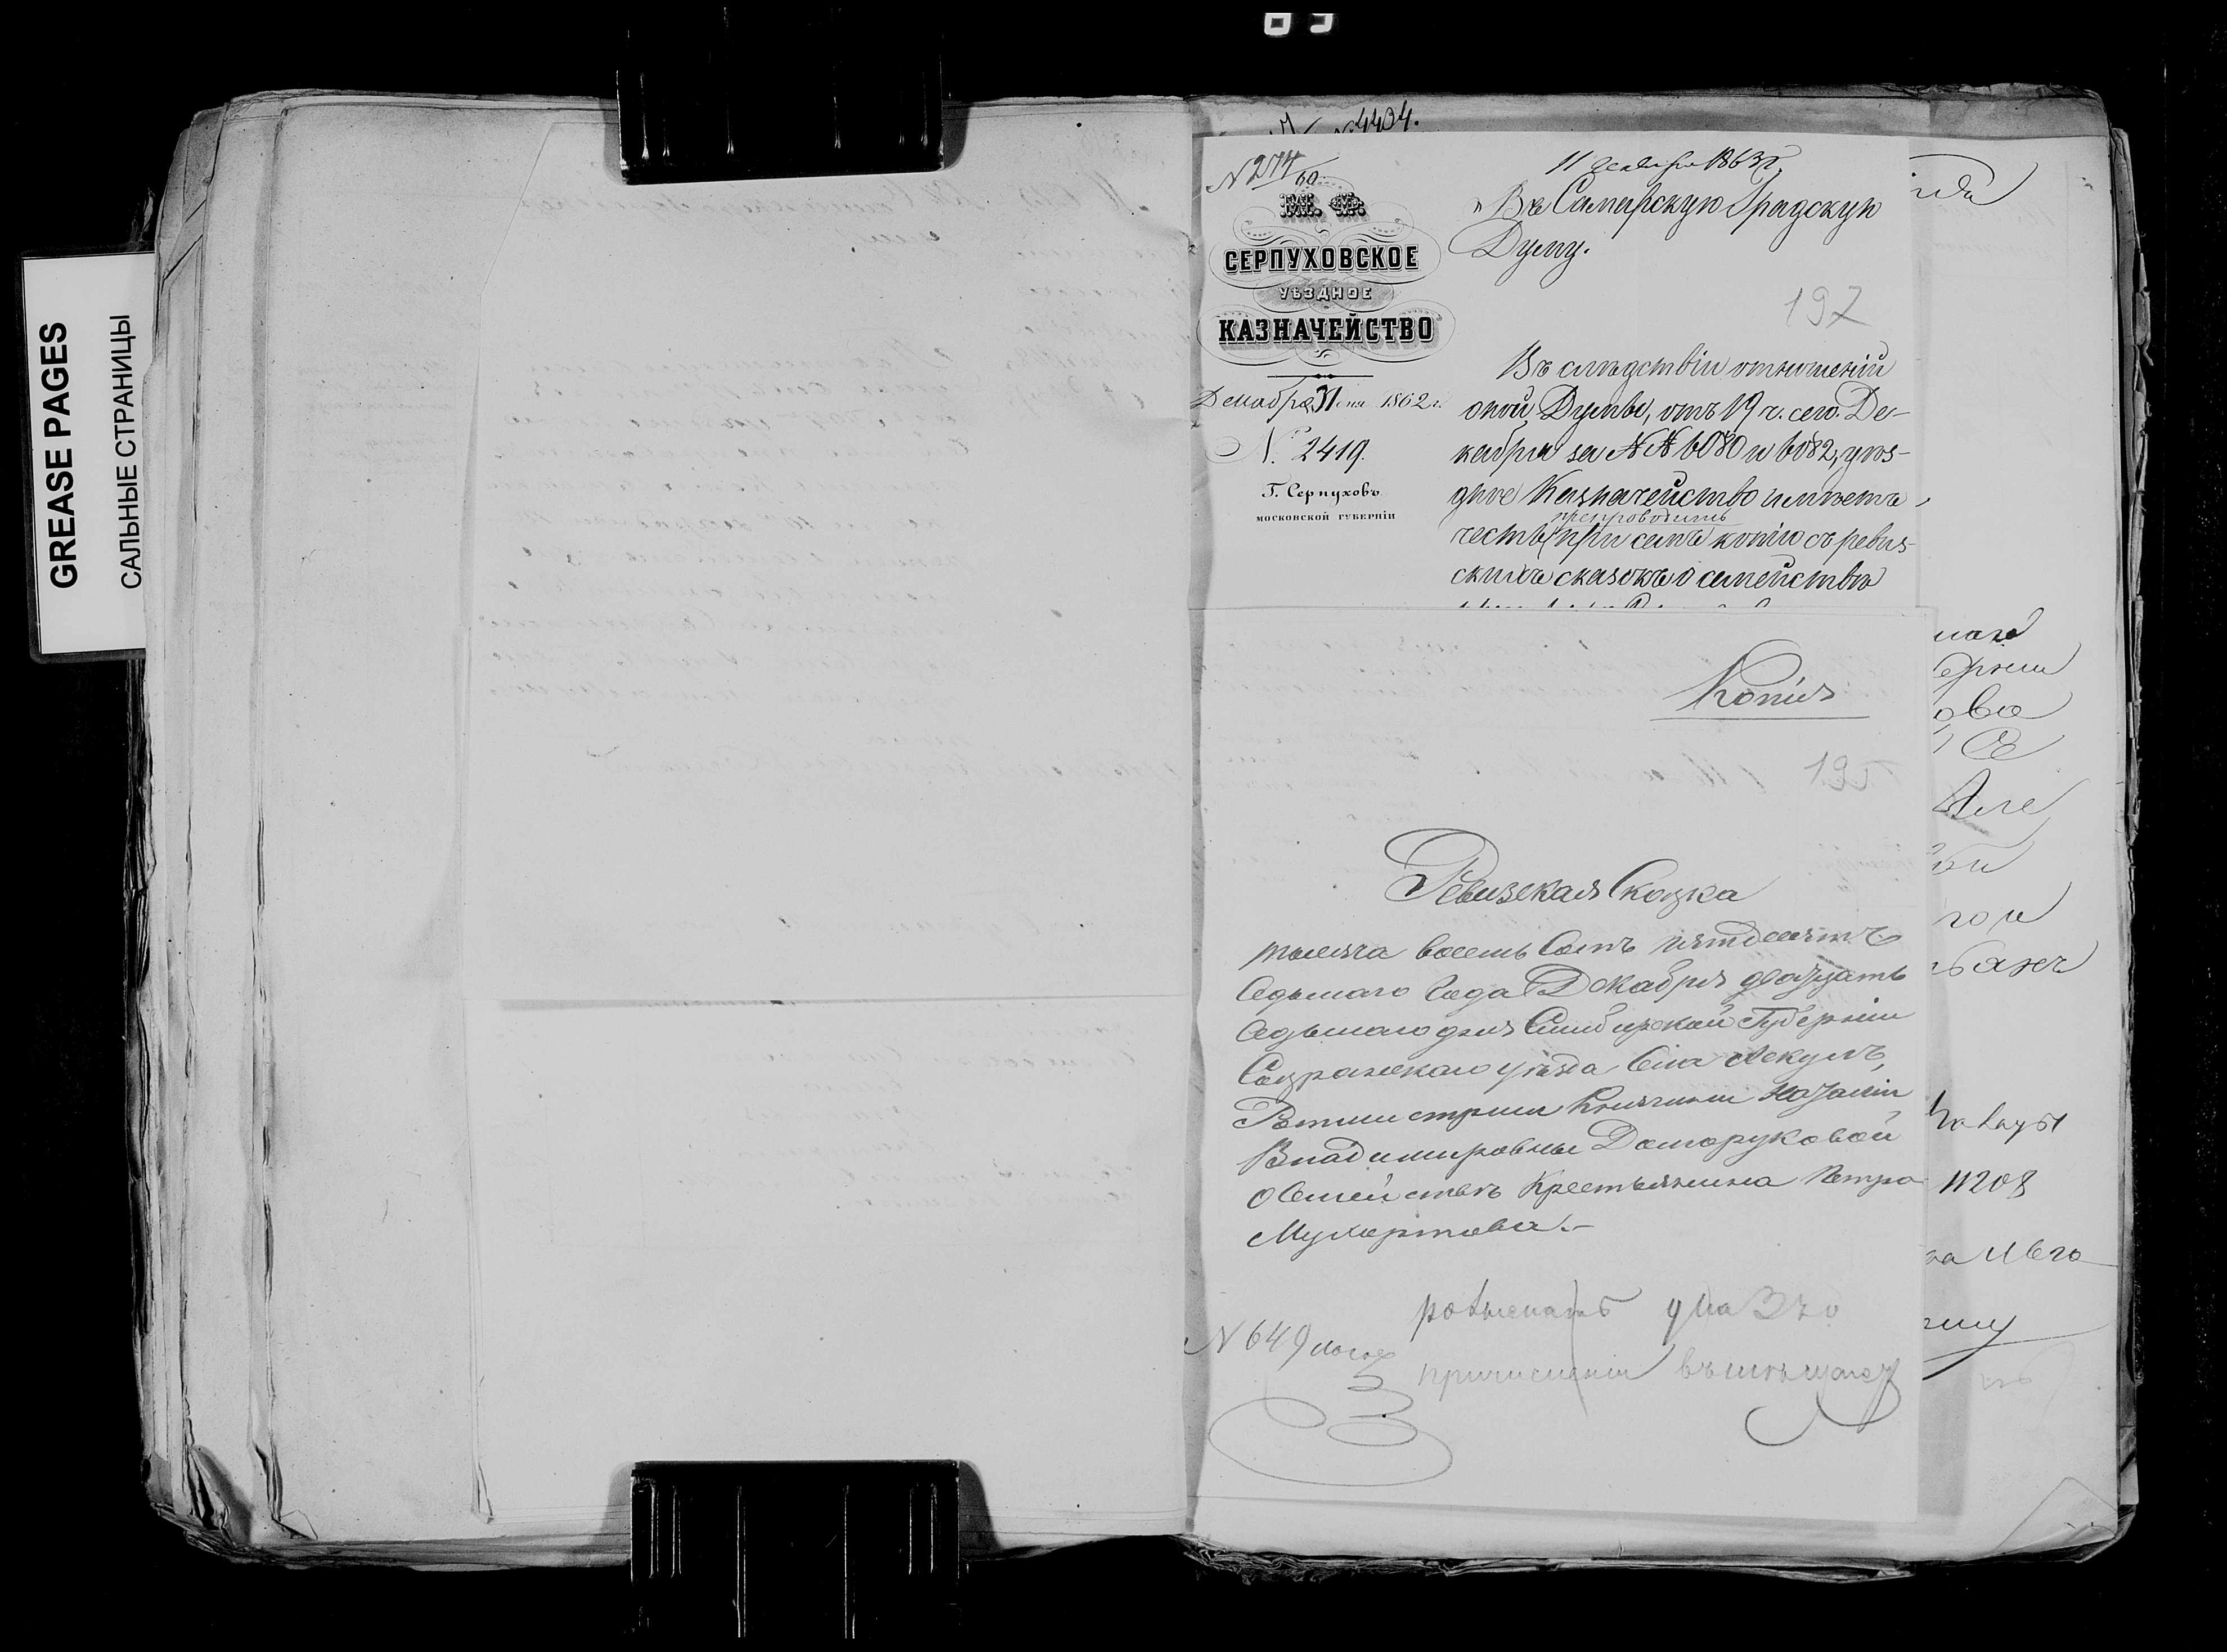 GREASE PAGES
САЛЬНЫЕ СТРАНИЦЫ
№ 4404.
N 274/60
11 Декабря 1863 г.
М. Ф.
СЕРПУХОВСКОЕ
УѢЗДНОЕ
КАЗНАЧЕЙСТВО
Декабря 31 дня 1862 г.
N. 2419.
Г. Серпуховъ
МОСКОВСКОЙ ГУБЕРНІИ
Въ Самарскую Градскую
Думу.
197
Въ слѣдствіи отношеній
оной Думы, отъ 19 ч. сего Де-
кабря за NN 6080 и 6082, уѣз-
дное Казначейство имѣетъ
препроводить
честь при семъ копію съ ревиз-
скихъ сказокъ о семействѣ
Копія
195
Ревизская Сказка
тысяча восемь Сотъ пятдесятъ
Седьмаго Года Декабря двадцать
Седьмаго дня Симбирской Губерніи
Сызранскаго уѣзда Села
Ротмистрши Княгини
Владимировны Долгоруковой
о Семействѣ Крестьянина Петра
Мухортова.-
N 649
причисленіи въ мѣщане
11208